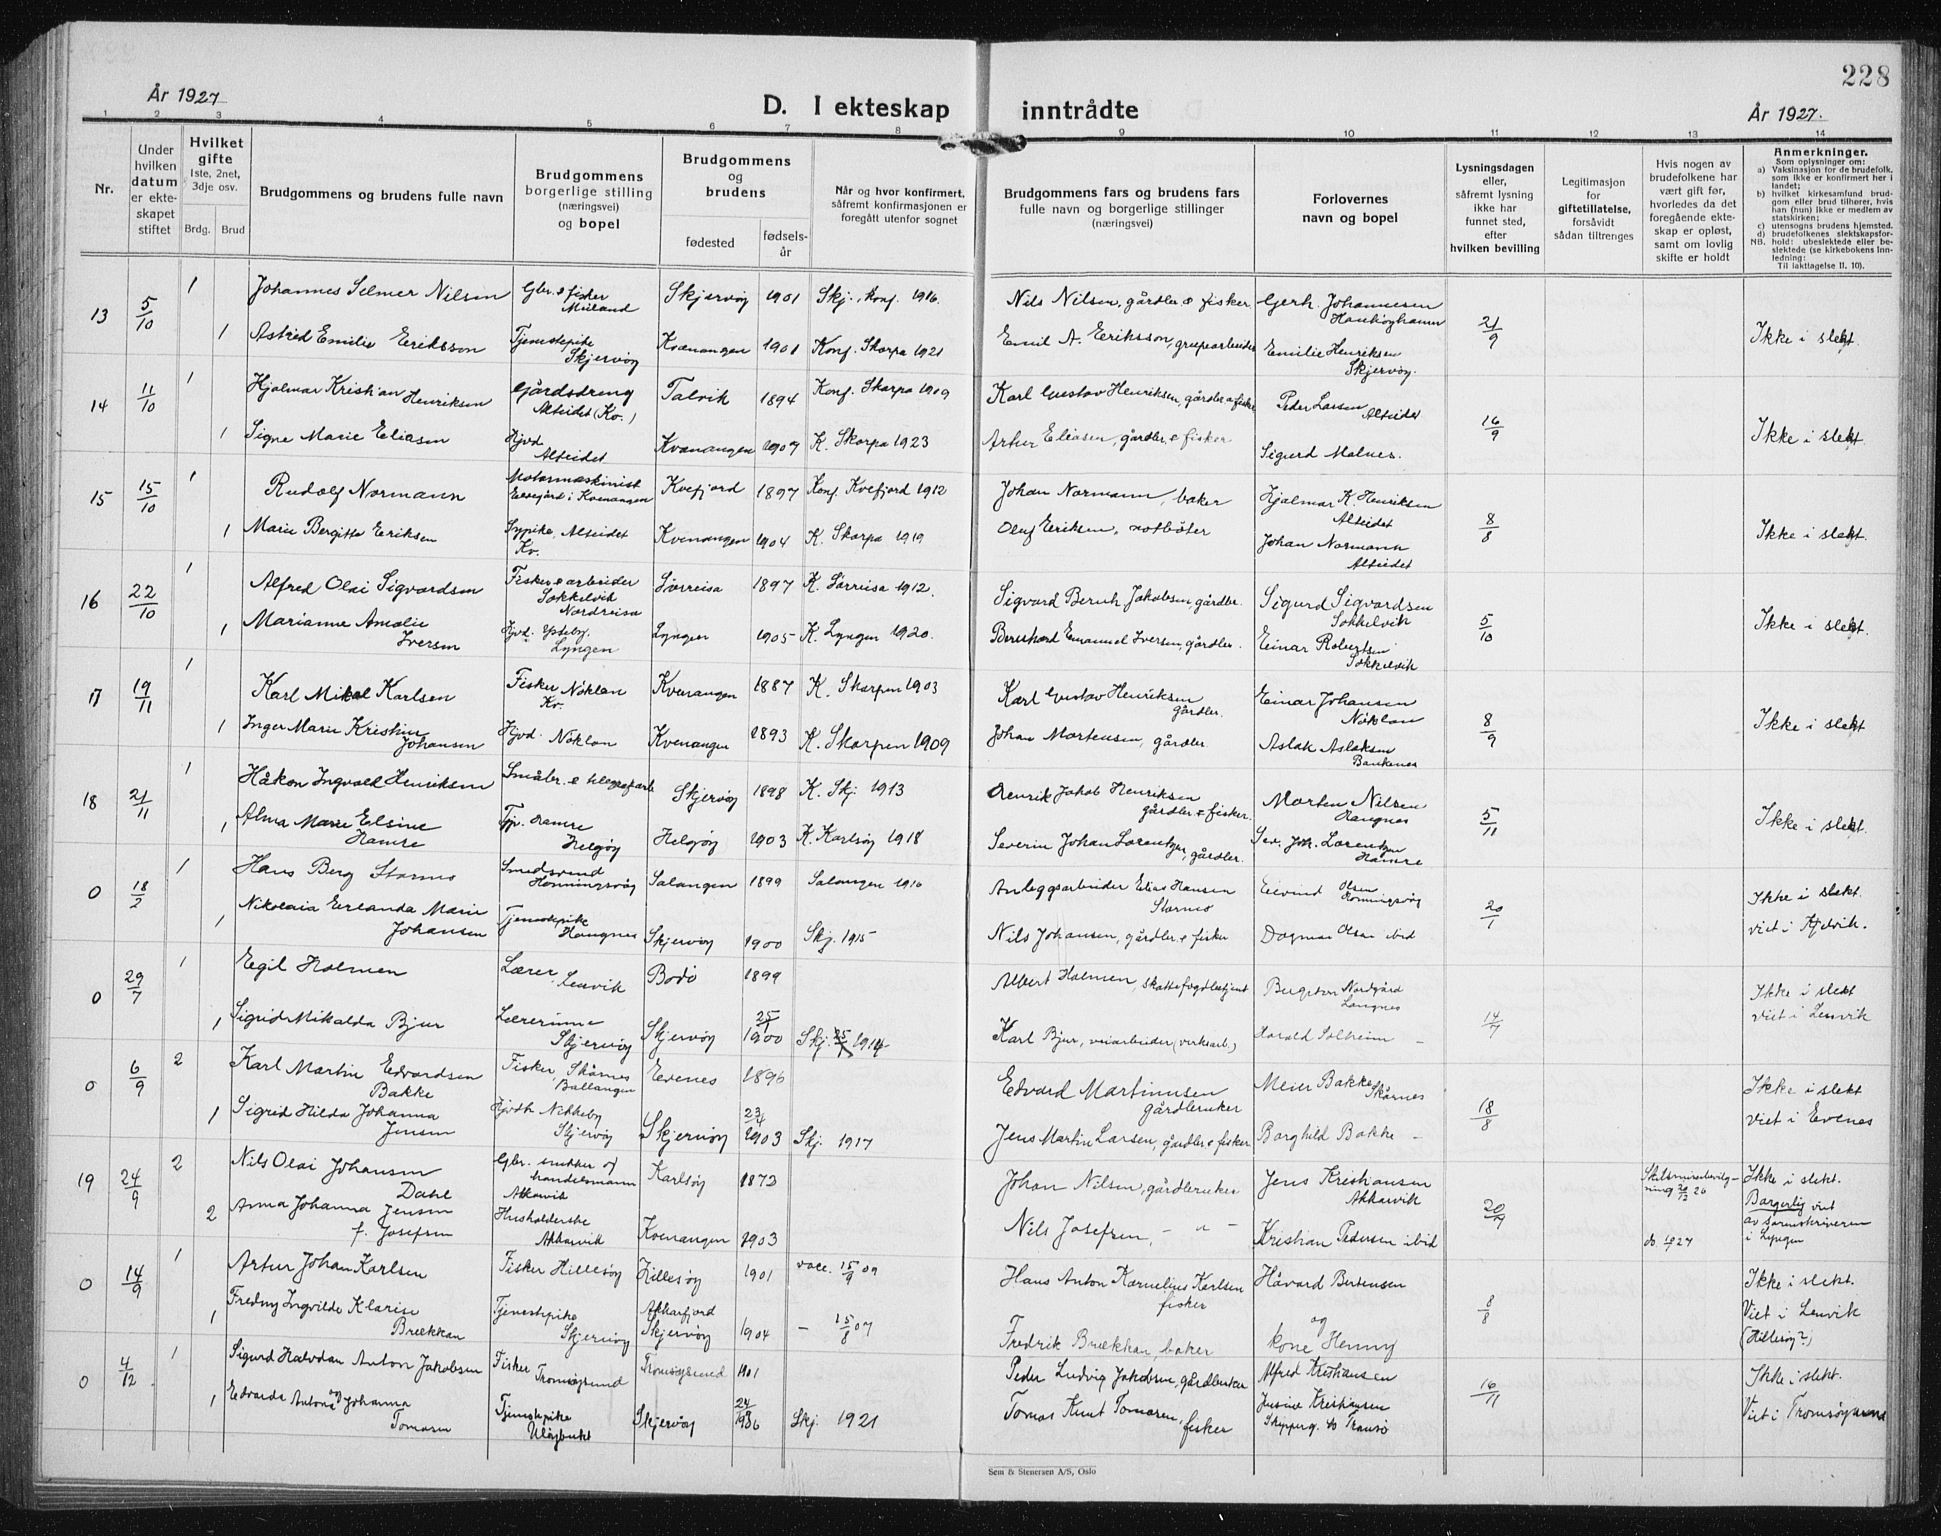 228
År 1927
D. I ekteskap inntrådte
År 1927.
1 2 3 4 5 6 7 8 9 10 11 12 13 14
Nr.
Under hvilken datum er ekte-skapet stiftet
Hvilket gifte
1ste, 2net, 3dje osv.
Brdg. Brud
Brudgommens og brudens fulle navn
Brudgommens borgerlige stilling (næringsvei) og bopel
Brudgommens og brudens
fødested
fødsels-år
Når og hvor konfirmert, såfremt konfirmasjonen er foregått utenfor sognet
Brudgommens fars og brudens fars fulle navn og borgerlige stillinger (næringsvei)
Forlovernes navn og bopel
Lysningsdagen eller, såfremt lysning ikke har funnet sted, efter hvilken bevilling
Legitimasjon for giftetillatelse, forsåvidt sådan tiltrenges
Hvis nogen av brudefolkene har vært gift før, hvorledes da det foregående ekte-skap er opløst, samt om lovlig skifte er holdt
Anmerkninger.
Som oplysninger om:
a) Vaksinasjon for de brudefolk, som ikke er konfirmert her i landet;
b) hvilket kirkesamfund brud-gom eller brud tilhører, hvis han (hun) ikke er medlem av statskirken;
c) utensogns brudens hjemsted.
d) brudefolkenes slektskapsfor-
NB. hold: ubeslektede eller be-slektede (se kirkebokens Inn-ledning:
Til iakttagelse II. 10).
13 5/10 1 Johannes Selmer Nilsen Gbr. & fisker Meiland Skjervøy 1901 Skj., konf. 1916. Nils Nilsen, gårdbr. & fisker. Gerh. Johannesen Haukøyhamn 21/9
1 Astrid Emilie Eriksson Tjenestepike Skjervøy Kvænangen 1901 Konf. Skorpa 1921 Emil A. Eeriksson, grubearbeider Emilie Henriksen Skjervøy. Ikke i slekt.
14 11/10 1 Hjalmar Kristian Henriksen Gårdsdreng Alteidet (Kv.) Talvik 1894 Konf. Skorpa 1909 Karl Gustav Henriksen, gårdbr. & fisker Peder Larsen Alteidet 16/9
1 Signe Marie Eliasen Hjvd Alteidet Kvænangen 1907 K. Skorpa 1923 Artur Eliasen, gårdbr. & fisker Sigurd Malnes. Ikke i slekt.
15 15/10 1 Rudolf Normann Motormaskinist Elvegård i Kvenangen Kvefjord 1897 Konf. Kvefjord 1912 Johan Normann, baker Hjalmar K. Henriksen Alteidet 8/8
1 Marie Bergitte Eriksen Sypike, Alteidet Kv. Kvenangen 1904 K. Skorpa 1919 Oluf Eriksen, notbøter Johan Normann Alteidet Ikke i slekt.
16 22/10 1 Alfred Olai Sigvardsen Fisker & arbeider Sokkelvik Nordreisa Sørreisa 1897 K. Sørreisa 1912. Sigvard Beruh Jakobsen, gårdbr. Sigurd Sigvardsen Sokkelvik 5/10
1 Marianne Amalie Iversen Hjvd. Ytteby. Lyngen Lyngen 1905 K. Lyngen 1920. Bernhard Emanuel Iversen, gårdbr. Einar Robertsen Sokkelvik Ikke i slekt.
17 19/11 1 Karl Mikal Karlsen Fisker Nøklan Kv. Kvenangen 1887 K. Skorpen 1903 Karl Gustav Henriksen gårdbr. Einar Johansen Nøklan 8/9
1 Inger Marie Kristine Johansen Hjvd. Nøklan Kvenangen 1893 K. Skorpen 1909 Johan Mortensen, gårdbr. Aslak Aslaksen Bankenes Ikke i slekt
18 21/11 1 Håkon Ingvald Henriksen Småbr. & telegrafarb Skjervøy 1898 K. Skj. 1913 Henrik Jakob Henriksen gårdbr. & fisker. Morten Nilsen Hangnes 5/11
1 Alma Marie Elsine Hamre Tjp. Hamre Helgøy Helgøy 1903 K. Karlsøy 1918 Severin Johan Lorentzen, gårdbr. Sev. Joh. Lorentzen Hamre Ikke i slekt.
0 18/2 1 Hans Berg Starnes Smedsvend Honningsvåg Salangen 1899 Salangen 1916 Anleggsarbeider Elias Hansen Starnes Eivind Olsen Honningsvåg 20/1 Ikke i slekt.
1 Nikolaia Erlanda Marie Johansen Tjenestepike Hangnes Skjervøy 1900 Skj. 1915 Nils Johansen, gårdbr. & fisker Dagmar Olsen ibid viet i Kjelvik.
0 29/7 1 Egil Holmen Lærer Lenvik Bodø 1899 Albert Holmen, skattefogdbetjent Nordgård Langnes 14/7 Ikke i slekt
1 Sigrid Mikalda Bjur Lærerinne Skjervøy Skjervøy 25/7 1900 Skj. 1914 Karl Bjur, veiarbeider (virksarb.) Harald Solheim – viet i Lenvik
0 6/9 2 Karl Martin Edvardsen Bakke Fisker, Skårnes Ballangen Evenes 1896 Edvard Martinusen gårdbruker Meier Bakke Skårnes 18/8 Ikke i slekt
1 Sigrid Hilda Johanna Jensen Hjvdtr Nikkeby Skjervøy Skjervøy 23/4 1903 Skj. 1917 Jens Martin Larsen, gårdbr. & fisker Borghild Bakke – viet i Evenes
19 24/9 2 Nils Olai Johansen Dahl Gbr. snekker og handelsmann Akkarvik Karlsøy 1873 Johan Nilsen, gårdbruker Jens Kristiansen Akkarvik 20/9 Skilsmissebevilg-ning 20/12 26 Ikke i slekt.
2 Anna Johanna Jensen f. Josefsen Husholderske Akkarvik Kvenangen 1903 Nils Josefsen, – " – Kristian Pedersen ibid do. 1927 Borgerlig viet av sorenskriveren i Lyngen
0 14/9 1 Artur Johan Karlsen Fisker Hillesøy Hillesøy 1901 vacc. 15/9 09 Hans Anton Kornelius Karlsen fisker Håvard Berntsen 8/8 Ikke i slekt.
1 Fredny Ingvilde Klarise Brækkan Tjenestepike Skjervøy Akkarfjord Skjervøy 1904 – 15/8 07 Fredrik Brækkan, baker og kone Henny Viet i Lenvik (Hillesøy?)
0 4/12 1 Sigurd Halvdan Anton Jakobsen Fisker Tromsøysund Tromsøysund 1901 Peder Ludvig Jakobsen, gårdbruker Alfred Kristiansen 16/11 Ikke i slekt.
1 Edvarda Antonie Johanna Tomasen Tjenestepike Uløybukt Skjervøy 24/8 1906 Skj. 1921 Tomas Knut Tomasen, fisker Kristiansen Skipperg. Tromsø Viet i Tromsøysund
Sem & Stenersen A/S, Oslo